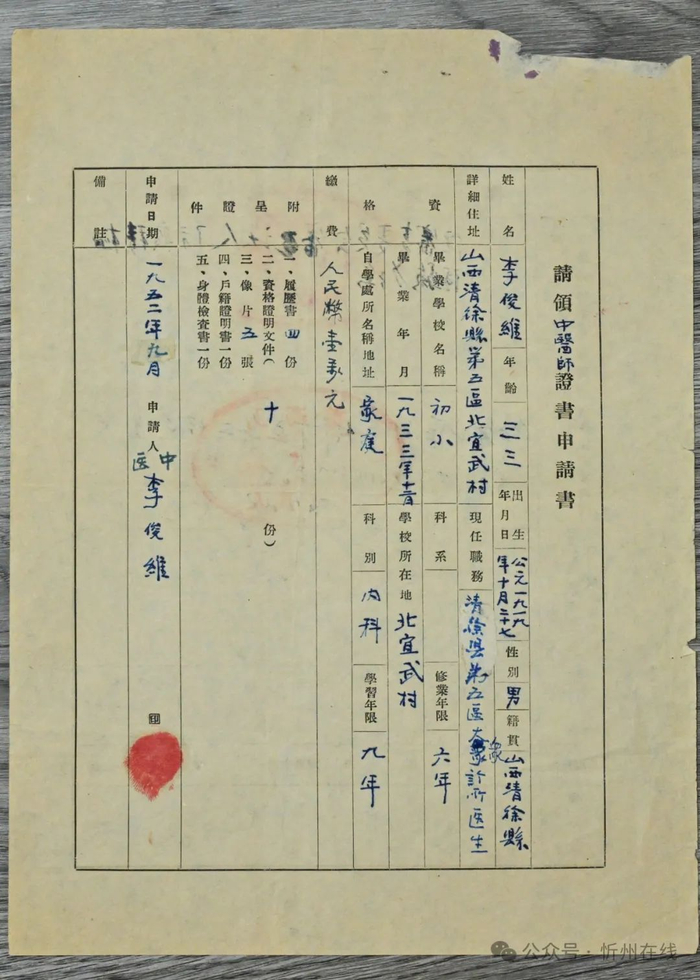 請領中醫師證書申請書
姓名 李俊維 年齡 三三 出生年月日 公元一九一九年十月二十七 性別 男 籍貫 山西清徐縣
詳細住址 山西清徐縣第五區北宜武村 現任職務 清徐县第五區大象診所医生
資格
畢業學校名稱 初小 科系 修業年限 六年
畢業年月 一九三三年十二月 學校所在地 北宜武村
自學處所名稱地址 家庭 科別 內科 學習年限 九年
繳費 人民幣壹萬元
附呈證件
一、履歷書四份
二、資格證明文件（十份）
三、像片五張
四、戶籍證明書一份
五、身體檢查書一份
申請日期 一九五二年九月 申請人 中医 李俊維 印
備註
公众号·忻州在线